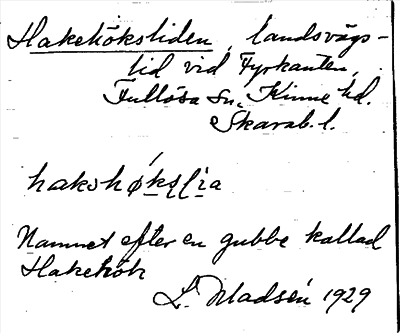 Hakehöksliden, landsvägs-
lid vid Fyrkanten,
Fullösa sn, Kinne hd.
Skarab. l.
hakshøksl̥ia
Namnet efter en gubbe kallad
Hakehök
L. Madsén 1929